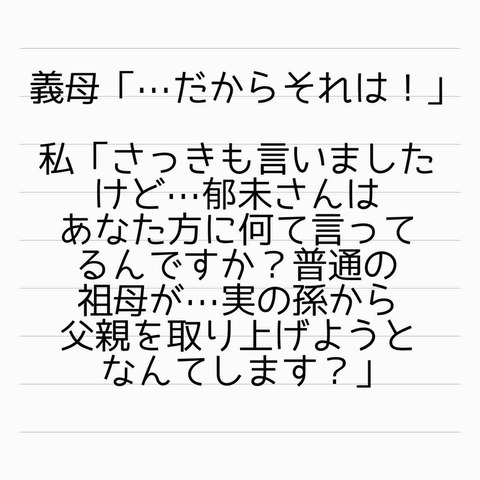 義母「…だからそれは！」
私「さっきも言いました
けど…郁未さんは
あなた方に何て言って
るんですか？普通の
祖母が…実の孫から
父親を取り上げようと
なんてします？」